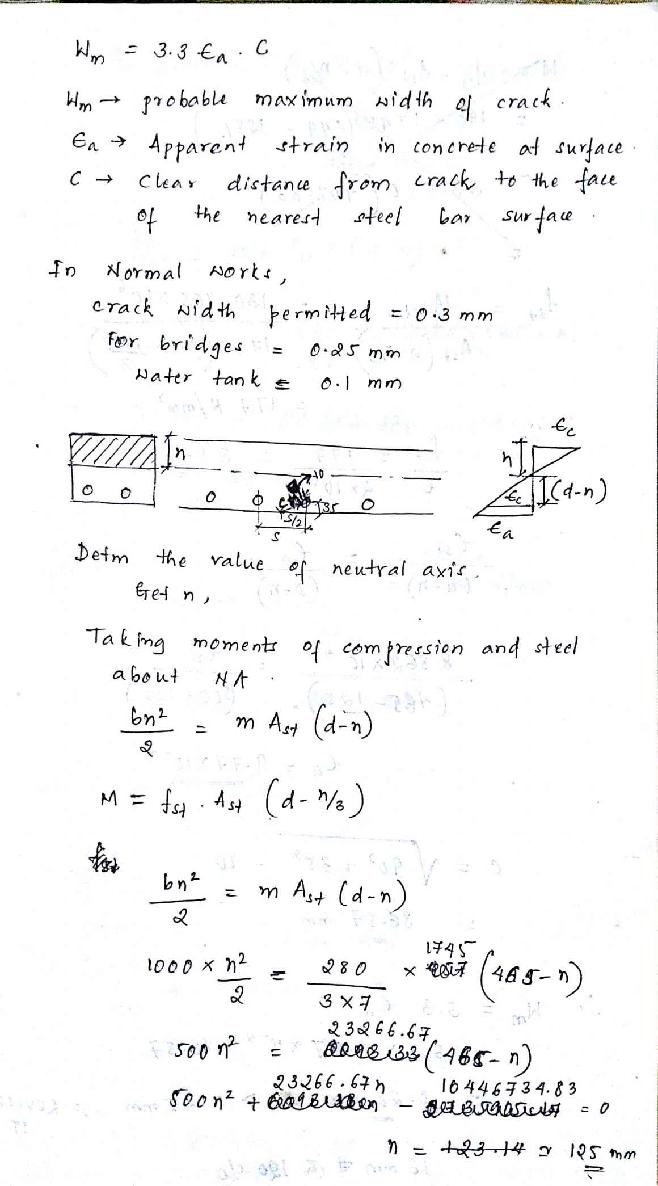 Wm = 3.3 Ea . C
Wm → probable maximum width of crack.
Ea → Apparent strain in concrete at surface.
C → Clear distance from crack to the face
of the nearest steel bar surface.
In Normal works,
crack width permitted = 0.3 mm
For bridges = 0.25 mm
Water tank = 0.1 mm
n
10
35
S/2
S
n
Ec
(d-n)
Ec
Ea
Detm the value of neutral axis.
Get n,
Taking moments of compression and steel
about NA.
bn²/2 = m Ast (d-n)
M = fst . Ast (d - n/3)
bn²/2 = m Ast (d-n)
1000 x n²/2 = 280/(3x7) x 1745 (465-n)
500n² = 23266.67 (465-n)
500n² + 23266.67n - 10446734.83 = 0
n = 123.14 ≈ 125 mm